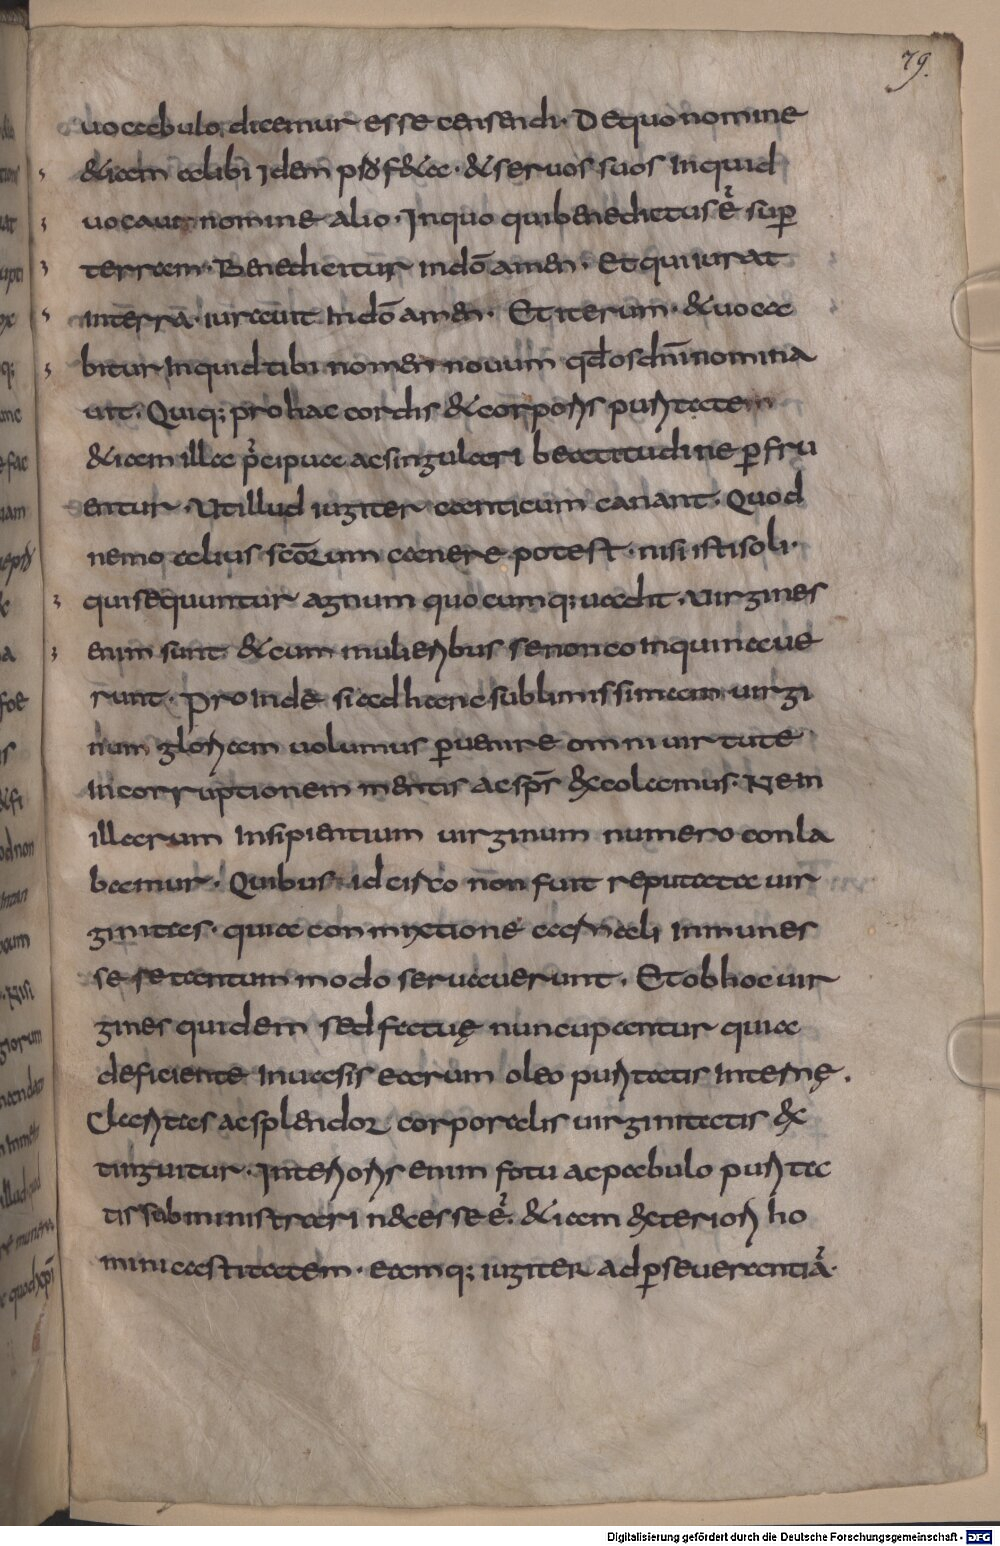 79.
uocabulo dicemur esse censendi· De quo nomine
&iam alibi idem ꝓph&a· &seruos suos inquid
uocauit nomine alio· Inquo qui benedictus ē sup
terram· Benedicitur indō amen· Et qui iurat
interra· iurauit indō amen· Et iterum· &uoca
bitur inquid tibi nomen nouum qđ os dnī nomina
uit· Quiq; pro hac cordis &corporis puritatem
&iam illa p̄cipua ac singulari beatitudine ꝑfru
entur· Ut illud iugiter canticum canant· Quod
nemo alius scōrum canere potest· nisi isti soli·
qui sequuntur agnum quocumq; uadit· Uirgines
enim sunt &cum mulieribus se non coinquinaue
runt· Proinde si ad hanc sublimissimam uirgi
num gloriam uolumus ꝑuenire omni uirtute
incorruptionem mentis ac spīs excolamus· Ne in
illarum insipientium uirginum numero conla
bamur· Quibus idcirco non fuit reputata uir
ginitas· quia conmixtione carnali inmunes
se se tantum modo seruauerunt· Et ob hoc uir
gines quidem sed fatuę nuncupantur quia
deficiente inuasis earum oleo puritatis internę·
Claritas ac splendor corporalis uirginitatis ex
tinguitur· Interioris enim fotu ac pabulo purita
tis subministrari necesse ē· &iam exteriori ho
mini castitatem· eamq; iugiter ad ꝑseuerantiā·
Digitalisierung gefördert durch die Deutsche Forschungsgemeinschaft - DFG